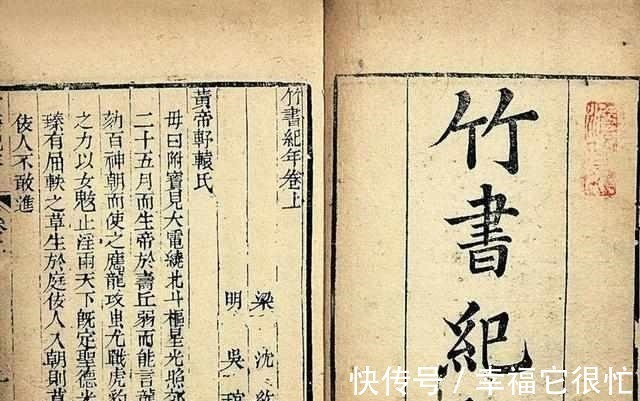 竹書紀
竹書紀年卷上
梁 沈
明 吳琯
黃帝軒轅氏
母曰附寶見大電繞北斗樞星光照郊
二十五月而生帝於壽丘弱而能言龍
劾百神朝而使之應龍攻蚩尤戰虎豹
之力以女魃止淫雨天下既定聖德光
臻有屈軼之草生於庭佞人入朝則草
佞人不敢進
快传号 / 幸福它很忙